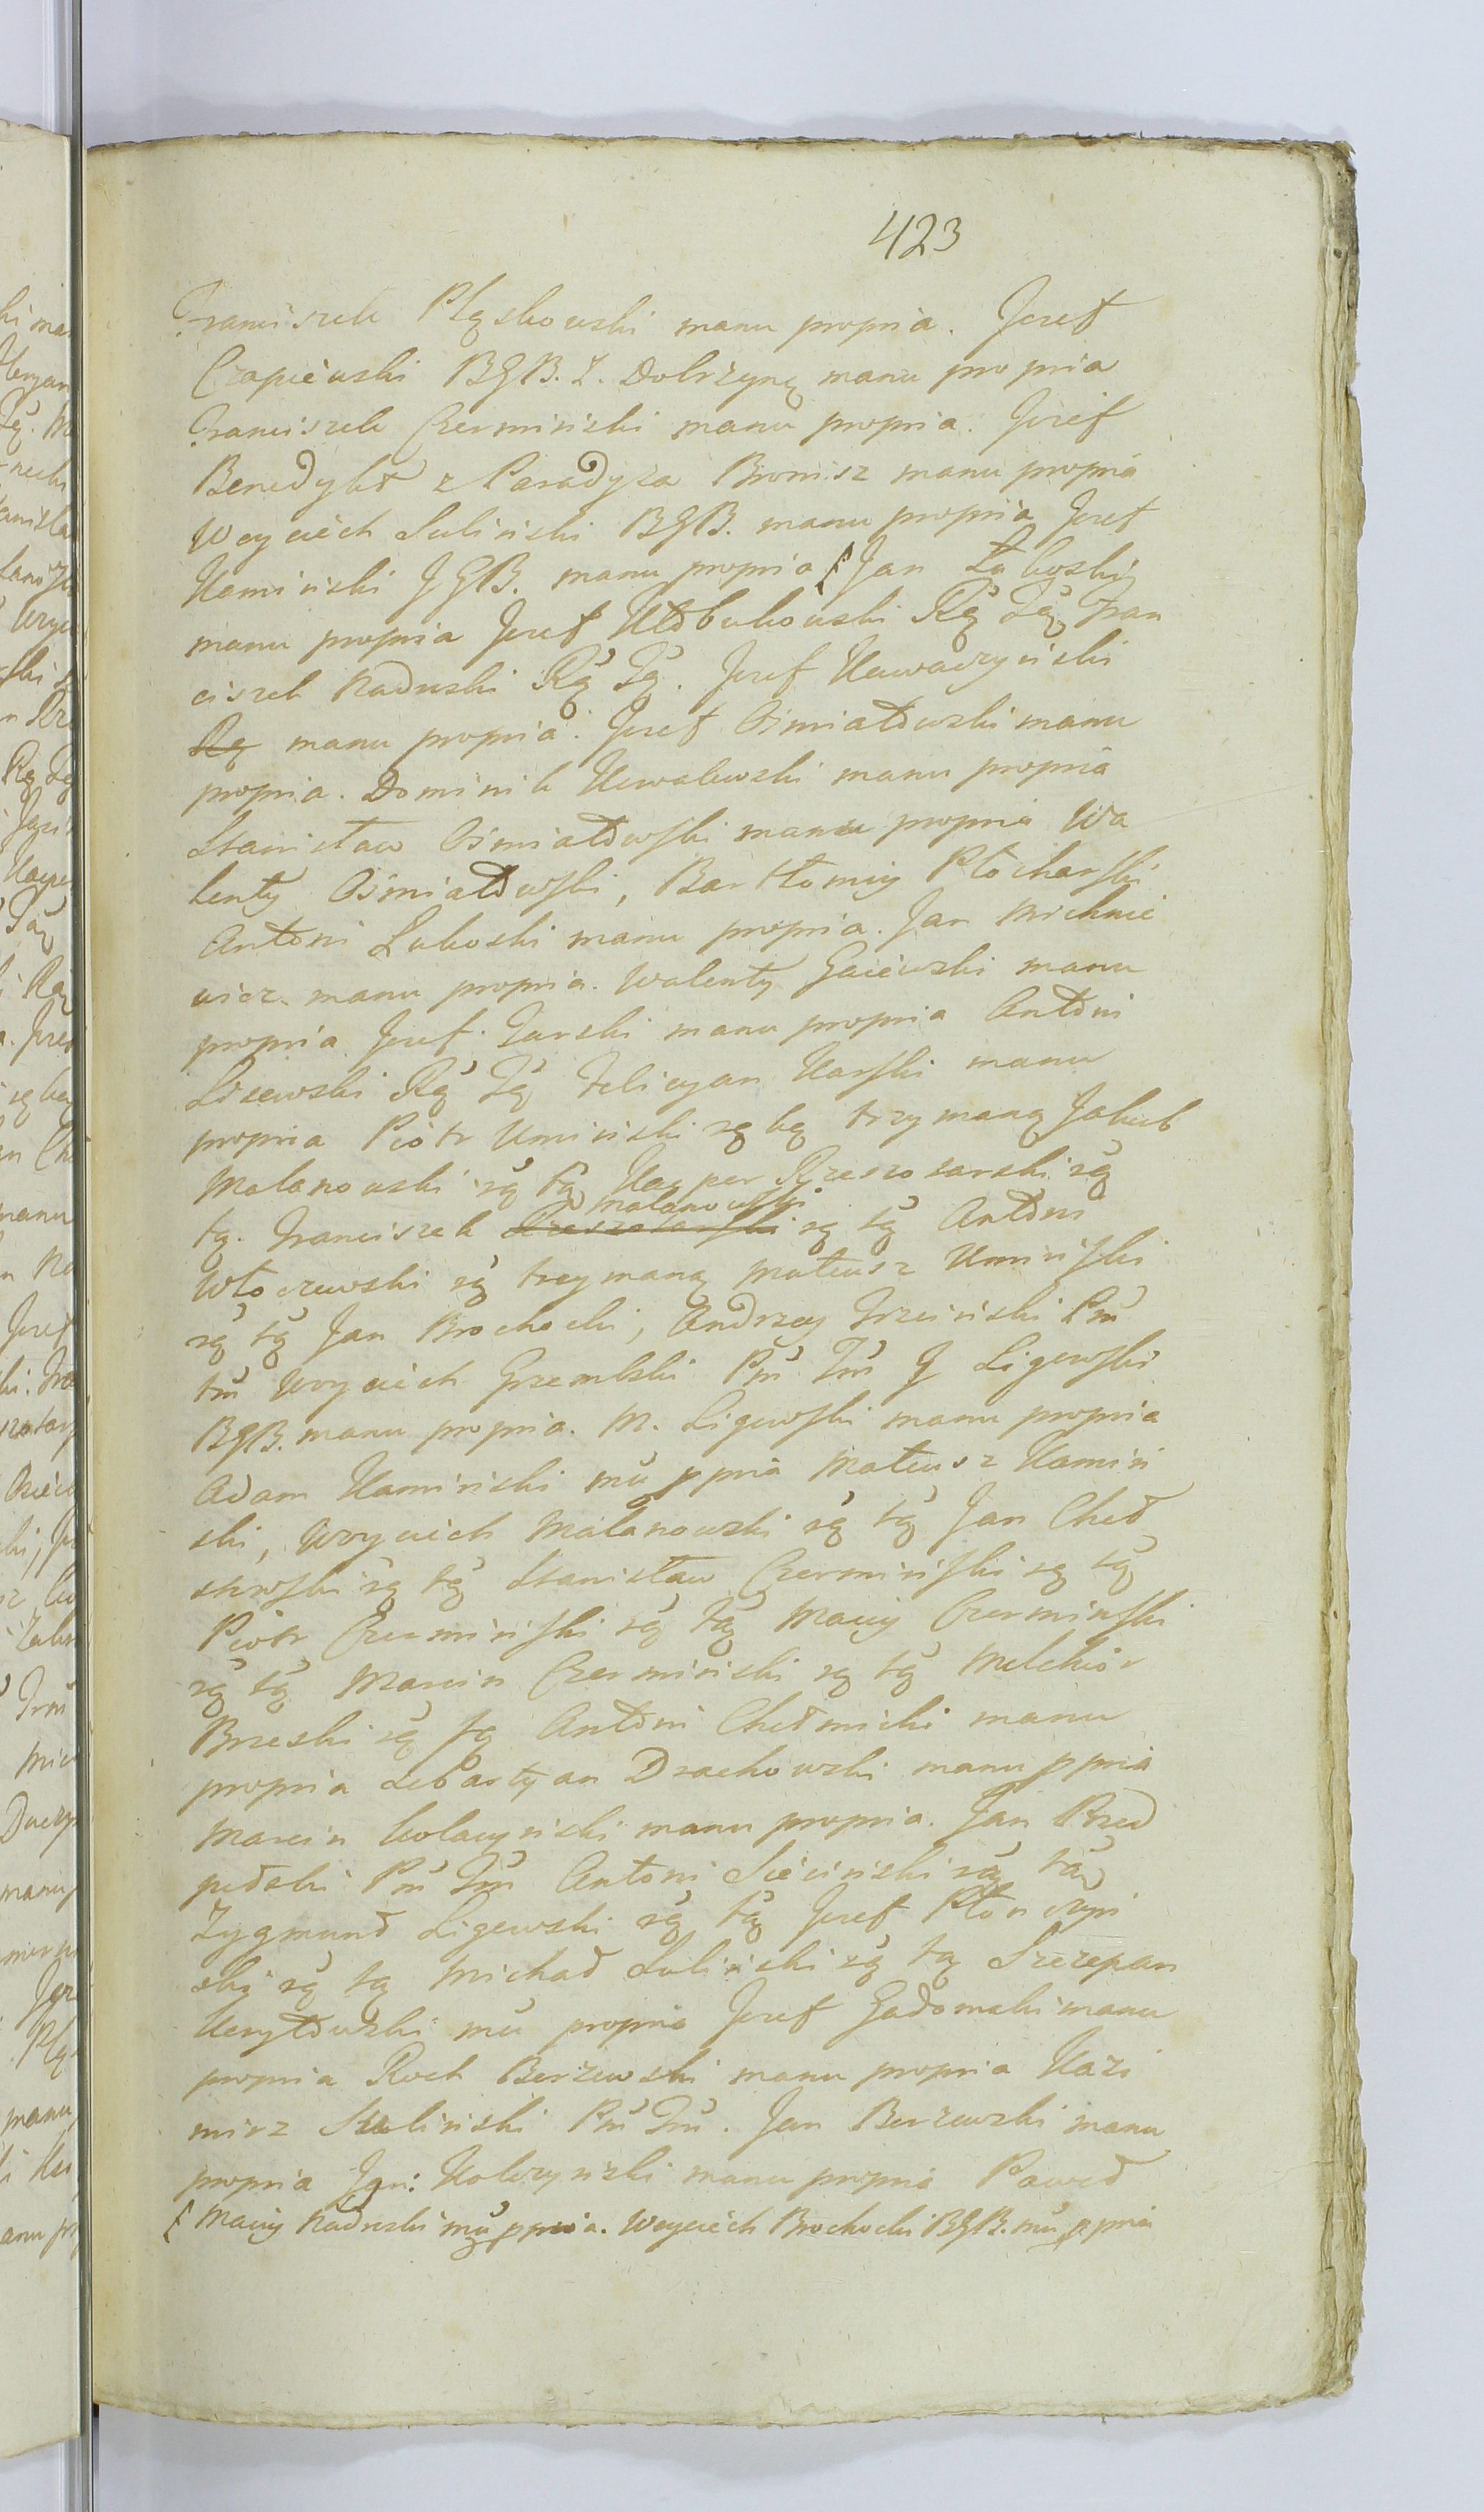 423
Franciszek Pląskowski manu propria. Jozef
Czapiewski BGB. Z. Dobrzyną manu propria
Franciszek Czerminski manu propria. Jozef
Benedykt z Paradyza Bronisz manu propria
Woyciech Sulinski BGB. manu propria Jozef
Kaminski JGB. manu propria Jan Łukoski
manu propria Jozef Rą Tą Fran
ciszek Nadroski Rą Tą. Jozef Kawaczynski
Rą manu propria. Jozef Osmiałowski manu
propria. Dominik Kowalewski manu propria
Stanisław Osmiałowski manu propria Wa
lenty Osmiałowski, Bartłomiy Płocharski
Antoni Lukoski manu propria. Jan Michnie
wicz. manu propria. Walenty Gaiewski manu
propria Jozef Turski manu propria Antoni
Lisewski Rą Tą Felicyan Karski manu
propria Piotr Uminski rąką trzymaną Jakub
Malanowski rą tą Kacper Rzeszotarski rą
tą. Franciszek Rzeszotarski Malanowski rą tą Antoni
Włoczewski rą trzymaną Mateusz Uminski
rą tą Jan Brochocki, Andrzey Trzcinski Pm
tm Woyciech Grzembski Pm Tm J Ligowski
BGB. manu propria. M. Ligowski manu propria
Adam Kaminski mu ppria Mateusz Kamin
ski, Woyciech Malanowski rą tą Jan Cheł
stowski rą tą Stanisław Czerminski rą tą
Piotr Czerminski rą tą Maciy Czerminski
rą tą Marcin Czerminski rą tą Melchior
Brzeski rą tą Antoni Chełmicki manu
propria Sebastyan Drachowski manu ppria
Marcin manu propria. Jan Przed
pełski Pm Tm Antoni Siecinski rą tą
Zygmund Ligowski rą tą Jozef Płonczyn
ski rą tą Michał Sulinski rą tą Szczepan
mu propria Jozef Gadomski manu
propria Roch Borzewski manu propria Kazi
mirz Sulinski Pm Tm. Jan Borzewski manu
propria Jan: Kolczynski manu propria Paweł
Maciy Nadroski mu ppria. Woyciech Brochocki BGB. mu ppria